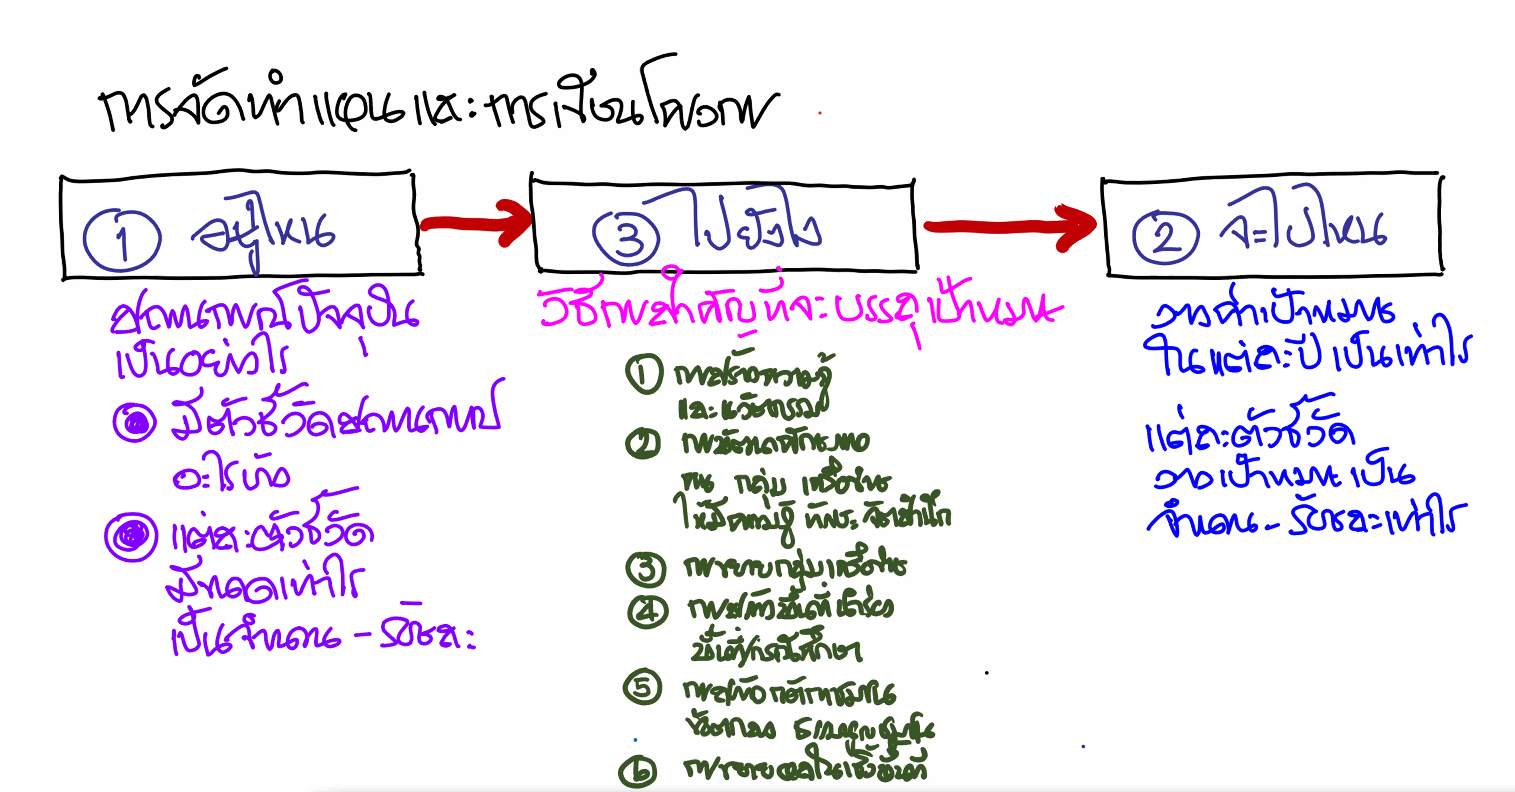 การจัดทำแผนและการเขียนโครงการ
① อยู่ไหน
③ ไปยังไง
② จะไปไหน
สถานการณ์ปัจจุบัน
เป็นอย่างไร
มีตัวชี้วัดสถานการณ์
อะไรบ้าง
แต่ละตัวชี้วัด
มีขนาดเท่าไร
เป็นจำนวน - ร้อยละ
วิธีการสำคัญที่จะบรรลุเป้าหมาย
① การสร้างความรู้
และนวัตกรรม
② การพัฒนาศักยภาพ
คน กลุ่ม เครือข่าย
ให้มีความรู้ ทักษะ จิตสำนึก
③ การขยายกลุ่มเครือข่าย
④ การสร้างพื้นที่นำร่อง
พื้นที่กรณีศึกษา
⑤ การสร้างกติกาชุมชน
ข้อตกลง ธรรมนูญชุมชน
⑥ การขยายผลในเชิงพื้นที่
วางค่าเป้าหมาย
ในแต่ละปี เป็นเท่าไร
แต่ละตัวชี้วัด
วางเป้าหมายเป็น
จำนวน - ร้อยละเท่าไร